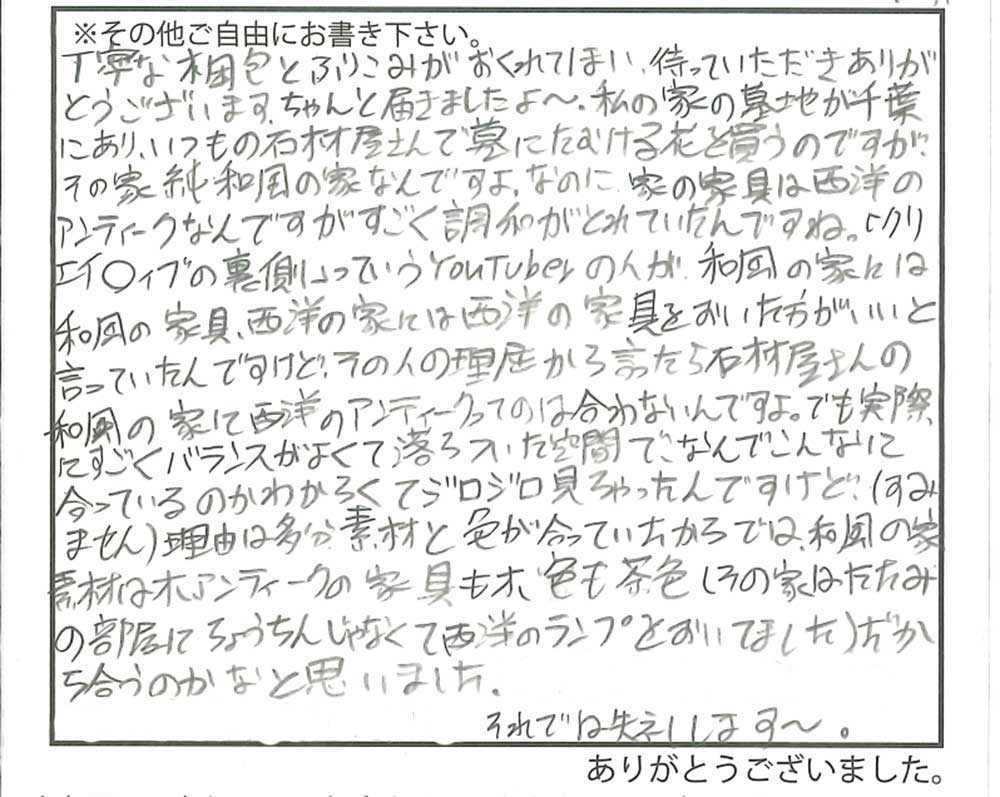 ※その他ご自由にお書き下さい。
丁寧な梱包とふりこみがおくれてしまい、待っていただきありが
とうございます。ちゃんと届きましたよ〜。私の家の墓地が千葉
にあり、いつもの石材屋さんで墓にたむける花を買うのですが、
その家純和風の家なんですよ。なのに、家の家具は西洋の
アンティークなんですがすごく調和がとれていたんですね。「クリ
エイ〇ィブの裏側」っていうYouTuberの人が、和風の家には
和風の家具、西洋の家には西洋の家具をおいた方がいいと
言っていたんですけど、その人の理屈から言ったら石材屋さんの
和風の家に西洋のアンティークってのは合わないんですよ。でも実際、
にすごくバランスがよくて落ちついた空間で、なんでこんなに
合っているのかわからくてジロジロ見ちゃったんですけど、(すみ
ません)理由は多分、素材と色が合っていたからでは、和風の家
素材は木アンティークの家具も木、色も茶色(その家はたたみ
の部屋にちょうちんじゃなくて西洋のランプとおいてました)だか
ら合うのかなと思いました。
それでは失礼します〜。
ありがとうございました。